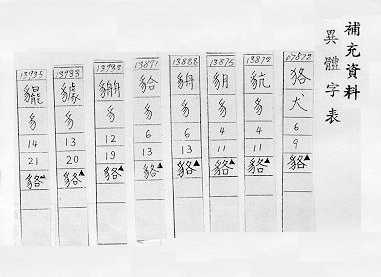 補充資料
異體字表
狢
犬
6
9
貉▲
貥
豸
4
11
貉▲
13875
豸
4
11
貉▲
13888
貈
豸
6
13
貉▲
13891
豸
6
13
貉▲
豸
12
19
貉▲
豸
13
20
貉▲
13935
豸
14
21
貉▲